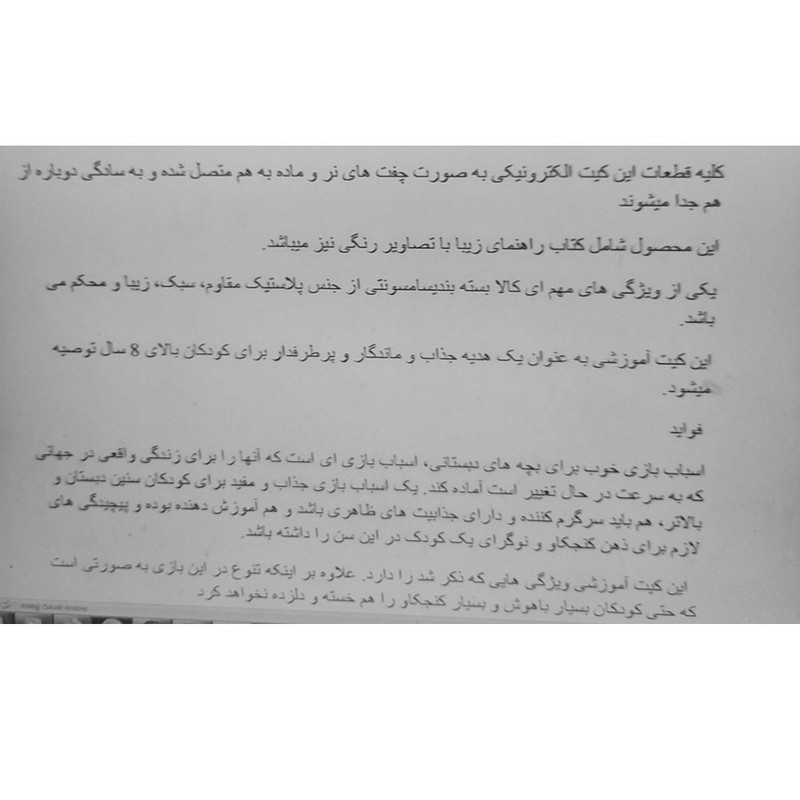 کلیه قطعات این کیت الکترونیکی به صورت چفت های نر و ماده به هم متصل شده و به سادگی دوباره از
هم جدا میشوند
این محصول شامل کتاب راهنمای زیبا با تصاویر رنگی نیز میباشد.
یکی از ویژگی های مهم ای کالا بسته بندیسامسونتی از جنس پلاستیک مقاوم، سبک، زیبا و محکم می
باشد.
این کیت آموزشی به عنوان یک هدیه جذاب و ماندگار و پرطرفدار برای کودکان بالای 8 سال توصیه
میشود.
فواید
اسباب بازی خوب برای بچه های دبستانی، اسباب بازی ای است که آنها را برای زندگی واقعی در جهانی
که به سرعت در حال تغییر است آماده کند. یک اسباب بازی جذاب و مفید برای کودکان سنین دبستان و
بالاتر، هم باید سرگرم کننده و دارای جذابیت های ظاهری باشد و هم آموزش دهنده بوده و پیچیدگی های
لازم برای ذهن کنجکاو و نوگرای یک کودک در این سن را داشته باشد.
این کیت آموزشی ویژگی هایی که ذکر شد را دارد. علاوه بر اینکه تنوع در این بازی به صورتی است
که حتی کودکان بسیار باهوش و بسیار کنجکاو را هم خسته و دلزده نخواهد کرد
Arabic (Saudi Arabia)